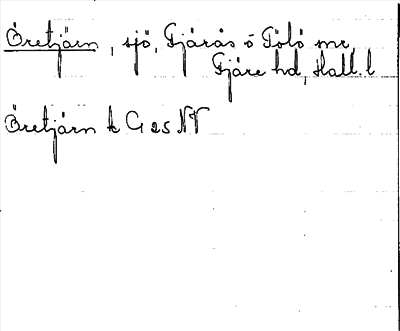 Öretjärn, sjö, Fjärås o Tölö snr,
Fjäre hd, Hall. l
Öretjärn k G 25 NV